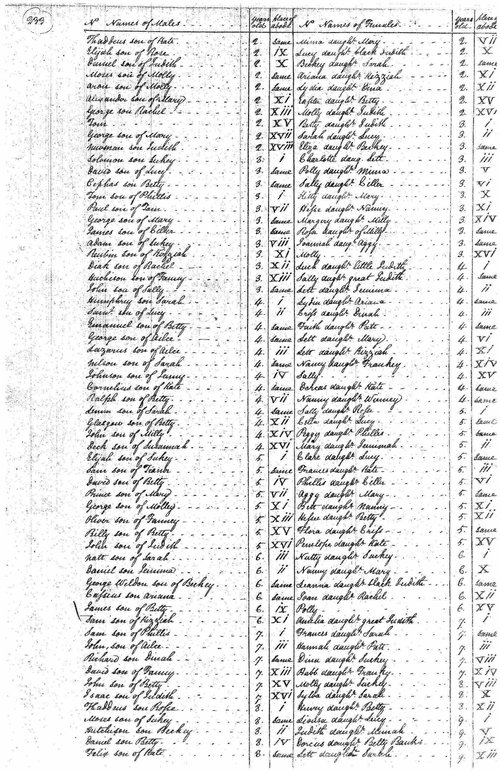 299
No Names of Males. Years old. place of abode. No Names of Females. Years old. place of abode.
Thaddeus son of Kate 2 same Mima daught. Mary 2 VII
Elijah son of Rose 2 IX Lucy daught. black Judith 2 X
Daniel son of Judith 2 X Beckey daught. Sarah 2 same
Moses son of Molly 2 same Ariana daught. Kizziah 2 XI
aron son of Molly 2 same Lydia daught. 2 XII
Alexander son of Mary 2 XI daught. Betty 2 XV
George son Rachel 2 XIII Molly daught. Judith 2 XVI
Tom 2 XV Betty daught. Judith 3 i
George son of Mary 2 XVII Sarah daught. Lucy 3 ii
son Judith 2 XVIII Eliza daught. Beckey 3 same
Solomon son Sukey 3 i Charlotte daug. Lett 3 iii
David son of Lucy 3 same Polly daught. Mima 3 V
Cephas son Betty 3 same Sally daught. Ciller 3 VI
Tom son of Phillis 3 i Kitty daught. Mary 3 X
son of 3 ii daught. Nanny 3 XI
George son of Mary 3 same Margery daught. Milly 3 XIV
James son of Ciller 3 same Rose daught. of Milly 3 same
Adam son of Sukey 3 VIII Joannah daug. Aggy 3 same
Reubin son of Kizziah 3 XI Molly 3 XVI
Dick son of Rachel 3 XII Suck daught. little Judith 4 i
son of Fanny 3 XIII Sally daugt. great Judith 4 same
John son of Sally 3 same Lett daught. Jemima 4 ii
Humphrey son Sarah 4 i Lydia daught. Ariana 4 same
Saml. son of Lucy 4 ii daught. Dinah 4 iii
Emanuel son of Betty 4 same Faith daught. Patt 4 same
George son of Ailce 4 same Lett daught. Mary 4 VI
Lazarus son of Ailce 4 iii Lett daught. Kizziah 4 XI
Nelson son of Sarah 4 same Nancy daught. Frankey 4 XIV
Johnson son of Fanny 4 IV Sally 4 XV
Cornelius son of Kate 4 same Dorcas daught. Kate 4 same
Ralph son of Betty 4 VII Nanny daught. Winney 4 same
son of Sarah 4 same Sally daught. Rose 5 i
Glasgow son of Betty 4 XII daught. Lucy 5 same
John son of Milly 4 XIV Peggy daught. Phillis 5 same
son of Susannah 4 XVI Mary daught. Jemimah 5 ii
Elijah son of Sukey 5 i Clara daught. Lucy 5 same
Sam son of 5 same Frances daught. Kate 5 iii
David son of Betty 5 IV Phillis daught. Ciller 5 VI
Prince son of Mary 5 VII Aggy daught. Mary 5 same
George son of Molly 5 XI daught. Nanny 5 XI
Oliver son of Fanney 5 XIII daught. Betty 5 XII
Billy son of Betty 5 XV Flora daught. 5 same
John son of Judith 5 XVI Penelope daught. Kate 5 XV
Natt son of Sarah 6 iii Nutty daught. Suckey 6 i
Daniel son Jemima 6 ii Nanny daught. Mary 6 X
George Weldon son of Beckey 6 same Leanna daught. black Judith 6 same
Cassius son ariana 6 same Joan daught. Rachel 6 XII
James son of Betty 6 IX Polly 6 XV
Sam son of Kizziah 6 XI Amelia daught. great Judith 7 i
Sam son of Phillis 7 i Frances daught. Sarah 7 same
John, son of Ailce 7 iii Hannah daught. Patt 7 iii
Richard son Dinah 7 same daught. Suckey 7 VIII
David son of Fanny 7 XIII Babb daught. Frankey 7 XIV
John son of Betty 7 XV Molly daught. Suckey 8 VIII
Isaac son of Judith 7 XVI Sylva daught. Sarah 8 X
Thaddeus son of Rose 8 i Henney daught. Betty 8 XI
Moses son of Sukey 8 same daught. Lucy 9 i
Hutchison son Beckey 8 ii Judith daught. Mimah 9 V
Daniel son Betty 8 IV Dorcas daught. Betty Banks 9 IX
Felix son of Kate 8 same Lett daught. 9 XIII